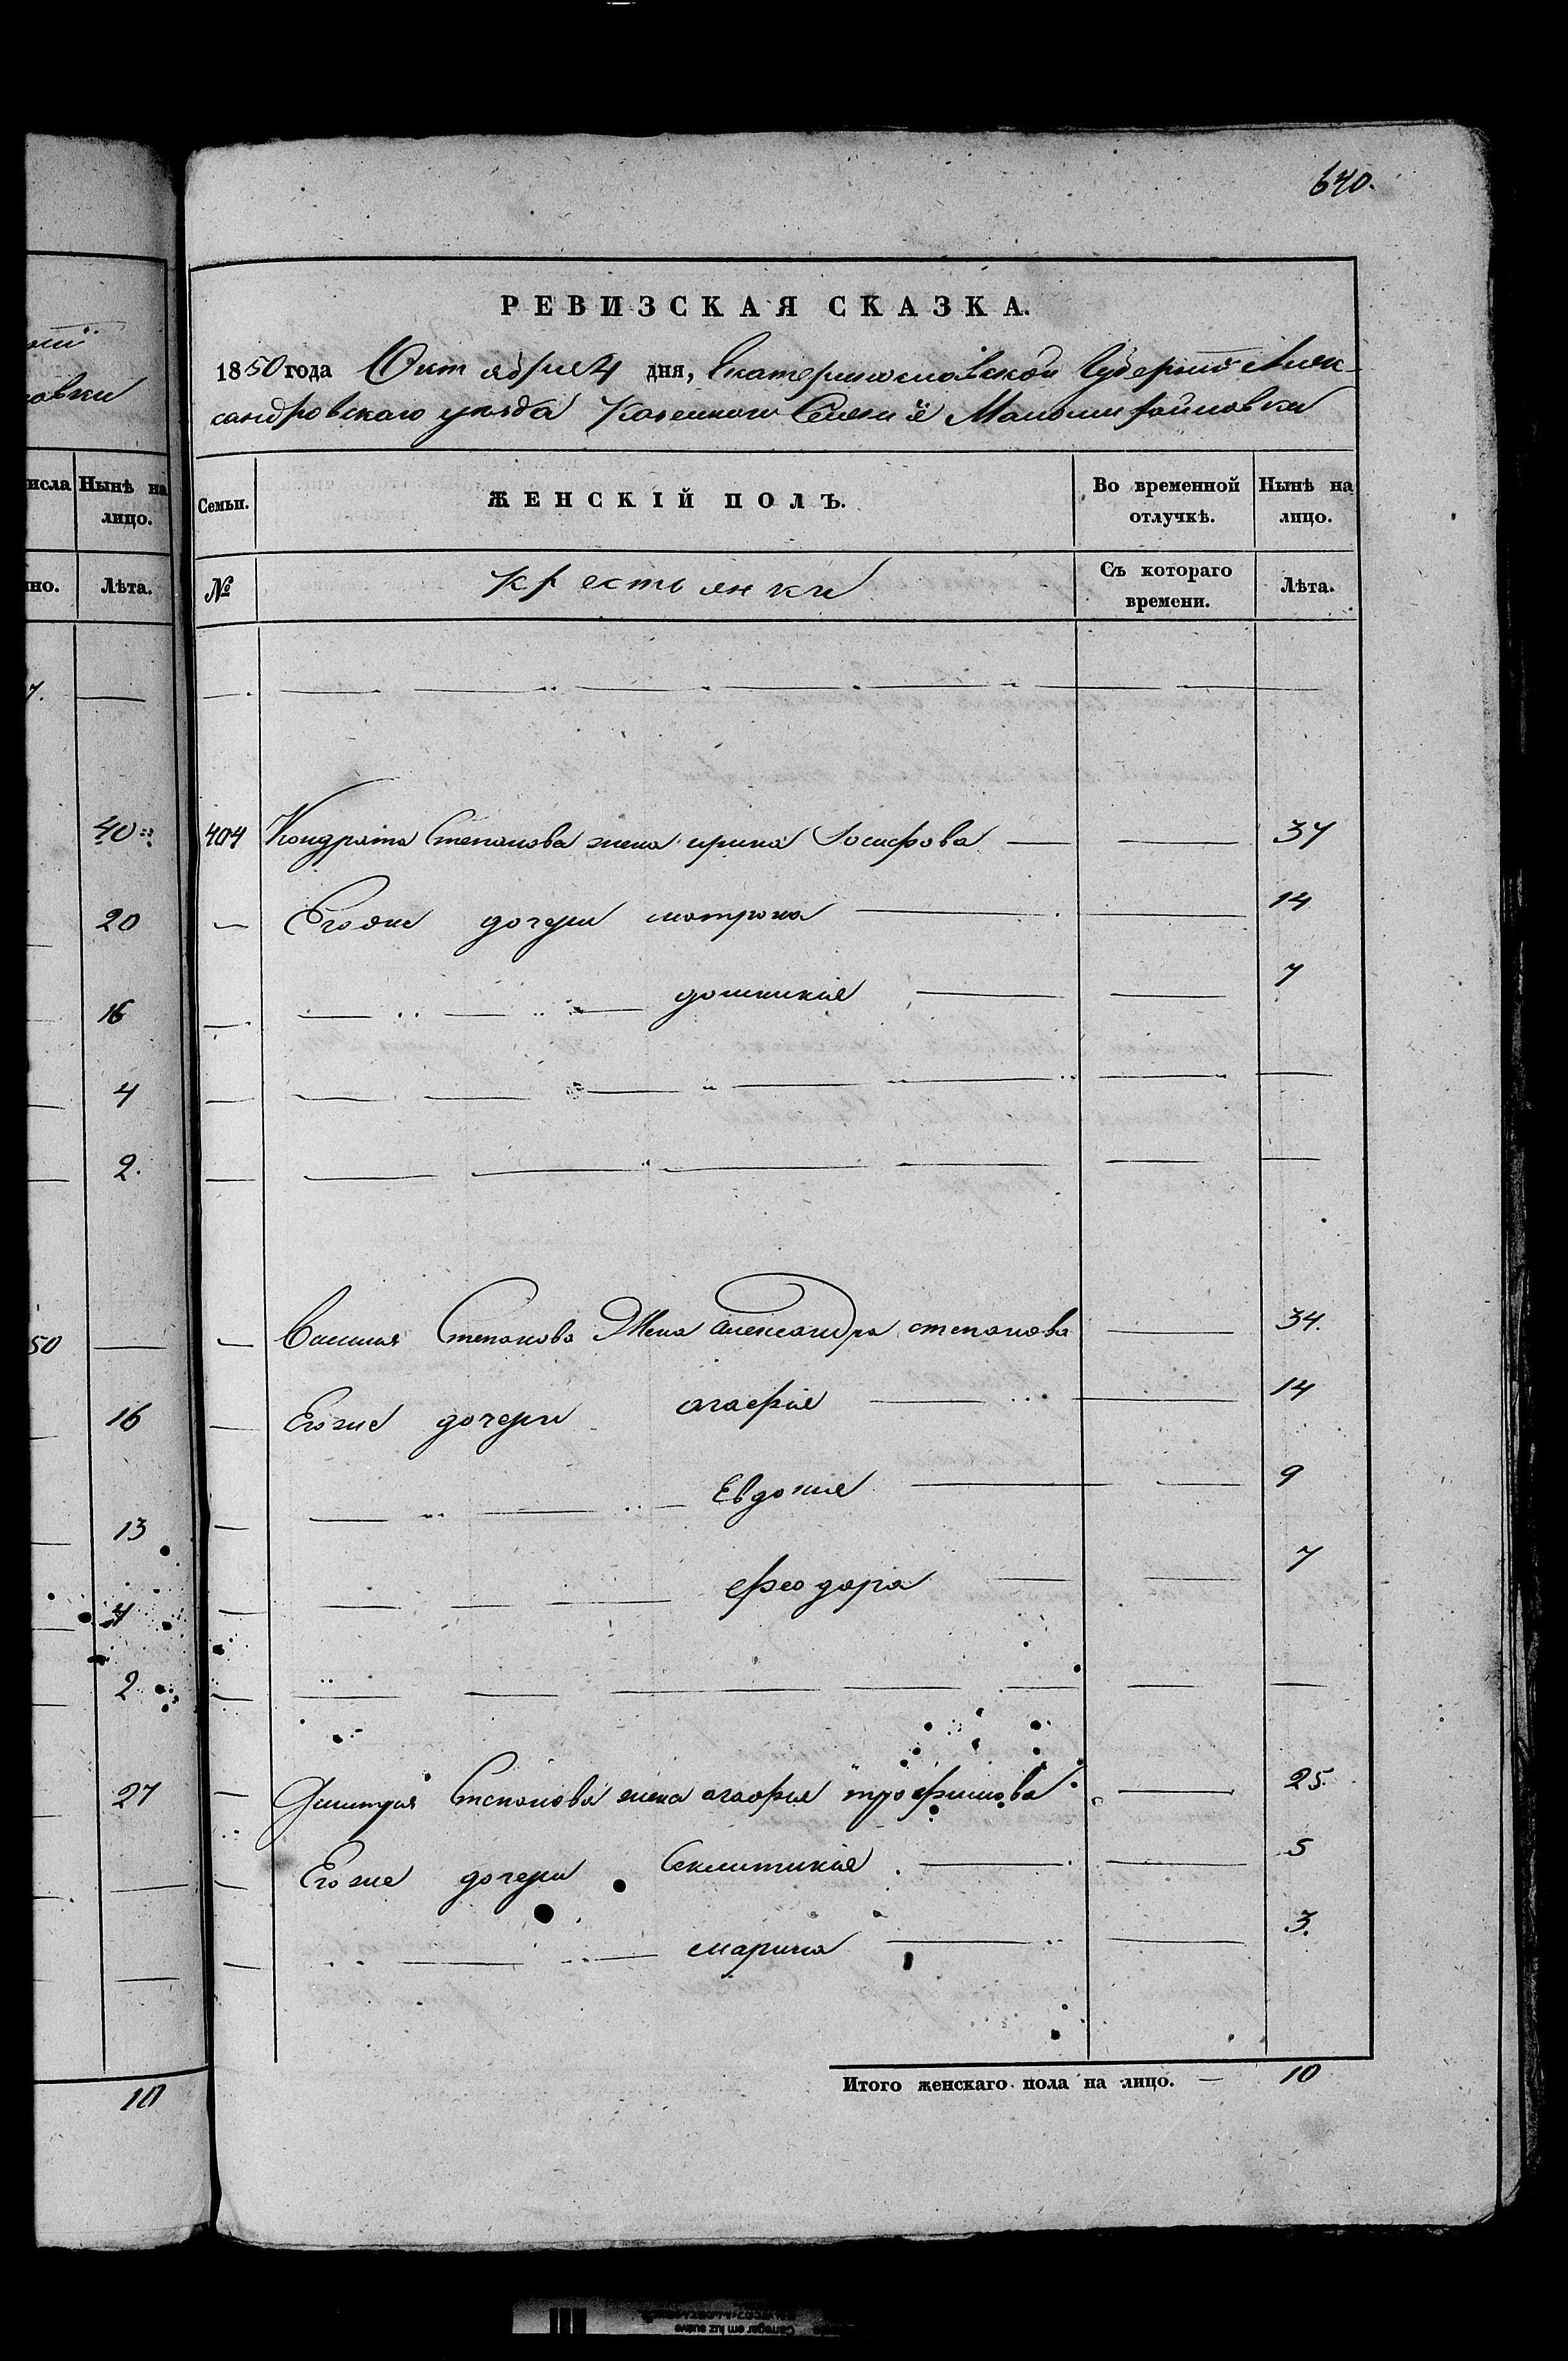 640.
РЕВИЗСКАЯ СКАЗКА.
1850 года Октября 4 дня, Екатеринославской Губернии Алек-
сандровскаго уезда Казеннаго Селенiя Маломихайловки
Семьи.
ЖЕНСКІЙ ПОЛЪ.
Во временной отлучкѣ.
Нынѣ на лицо.
№
крестьянки
Съ котораго времени.
Лѣта.
404 Кондрата Степанова жена ирина Iосифова 37
Егоже дочери матрона 14
домникiя 7
Василия Степанова Жена александра степанова 34.
Егоже дочери агафiя 14
Евдокия 9
феодора 7
Димитрия Степанова жена агафия трофимова 25.
Егоже дочери Секлитикiя 5
марина 3.
Итого женскаго пола на лицо. — 10
овки
исла
Нынѣ на лицо.
но.
Лѣта.
7.
40
20
16
4
2.
50
16
13
4
2
27
10